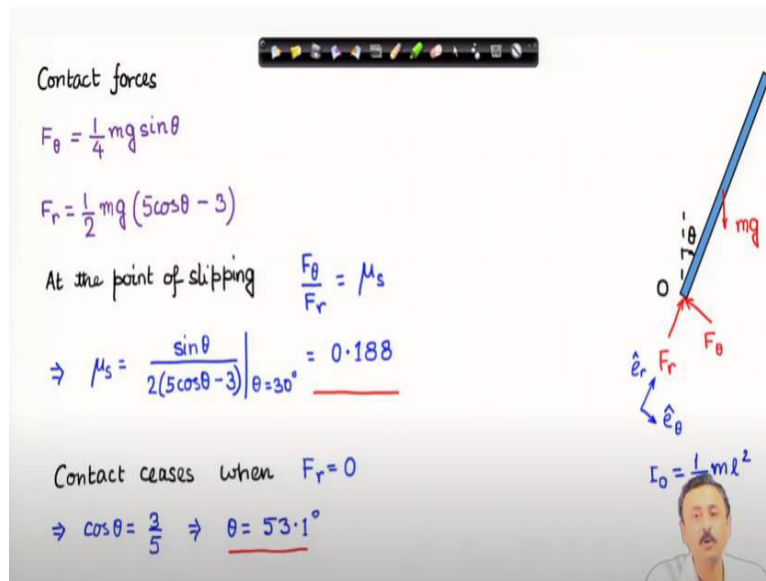 Contact forces
F_θ = 1/4 mg sinθ
F_r = 1/2 mg (5cosθ − 3)
At the point of slipping F_θ/F_r = μ_s
⇒ μ_s = sinθ / 2(5cosθ−3) |θ=30° = 0.188
Contact ceases when F_r = 0
⇒ cosθ = 3/5 ⇒ θ = 53.1°
θ
mg
O
F_r
F_θ
ê_r
ê_θ
I_o = 1 ml²